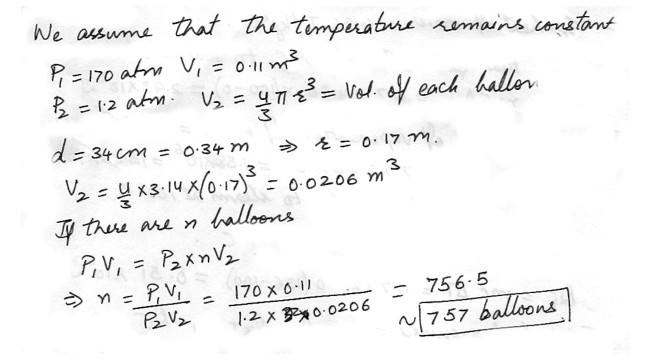 We assume that the temperature remains constant
P₁ = 170 atm V₁ = 0.11 m³
P₂ = 1.2 atm. V₂ = 4/3 π r³ = Vol. of each ballon
d = 34 cm = 0.34 m ⇒ r = 0.17 m.
V₂ = 4/3 × 3.14 × (0.17)³ = 0.0206 m³
If there are n balloons
P₁V₁ = P₂ × nV₂
⇒ n = P₁V₁ / P₂V₂ = 170 × 0.11 / 1.2 × 0.0206 = 756.5
~ 757 balloons